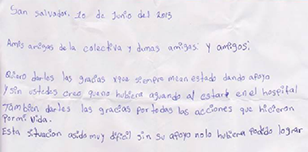 San salvador, 10 de Junio del 2013
Amis amigas de la colectiva y dumas amigas: y amigos:
Quiero darles las gracias xque siempre mean estado dando apoyo
y sin ustedes creo que no hubiera aguando al estark en el hospital
Tambien darles las gracias por todas las acciones que hicieron
por mi Vida:
Esta situacion asido muy dificil sin su apoyo nolo hubiera podido lograr